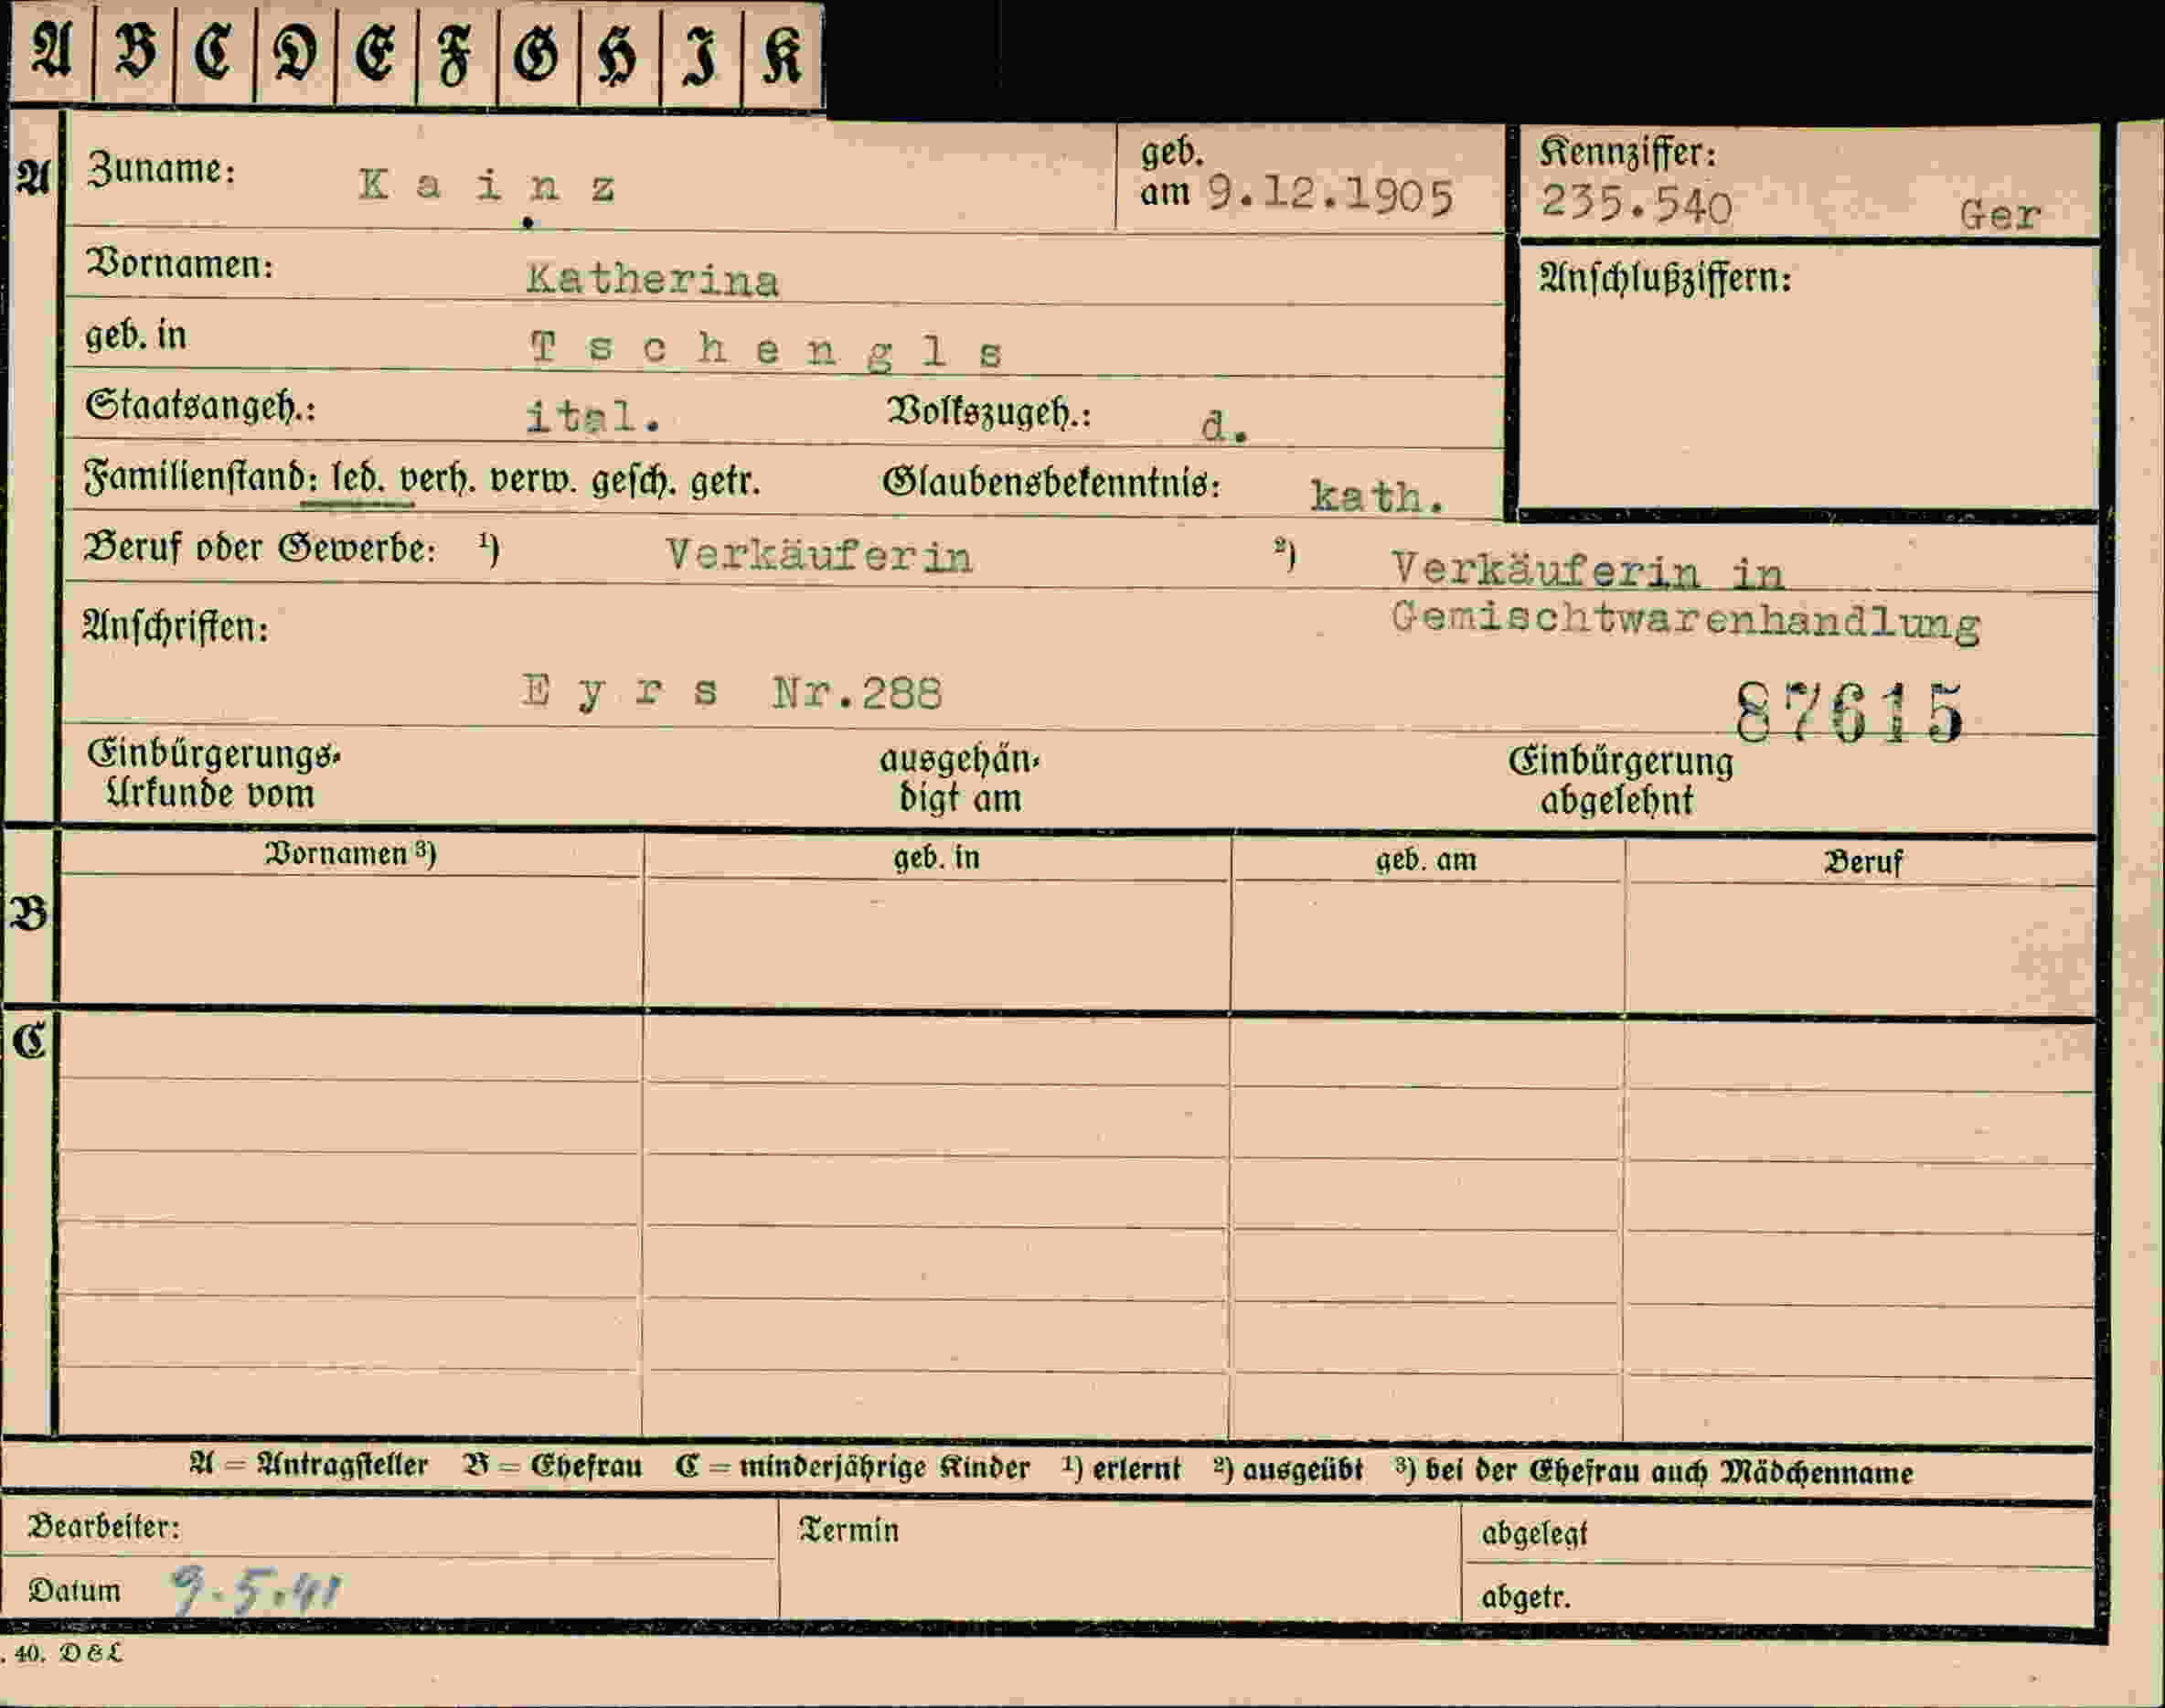 A B C D E F G H I K
A
Zuname: Kainz
geb. am 9.12.1905
Kennziffer: 235.540 Ger
Vornamen: Katherina
Anschlußziffern:
geb. in Tschengls
Staatsangeh.: ital. Volkszugeh.: d.
Familienstand: led. verh. verw. gesch. getr. Glaubensbekenntnis: kath.
Beruf oder Gewerbe: 1) Verkäuferin 2) Verkäuferin in
Gemischtwarenhandlung
Anschriften:
Eyrs Nr.288
87615
Einbürgerungs-
Urkunde vom
ausgehän-
digt am
Einbürgerung
abgelehnt
B
Vornamen 3) geb. in geb. am Beruf
C
A = Antragsteller B = Ehefrau C = minderjährige Kinder 1) erlernt 2) ausgeübt 3) bei der Ehefrau auch Mädchenname
Bearbeiter:
Datum 9.5.41
Termin
abgelegt
abgetr.
. 40. D & L